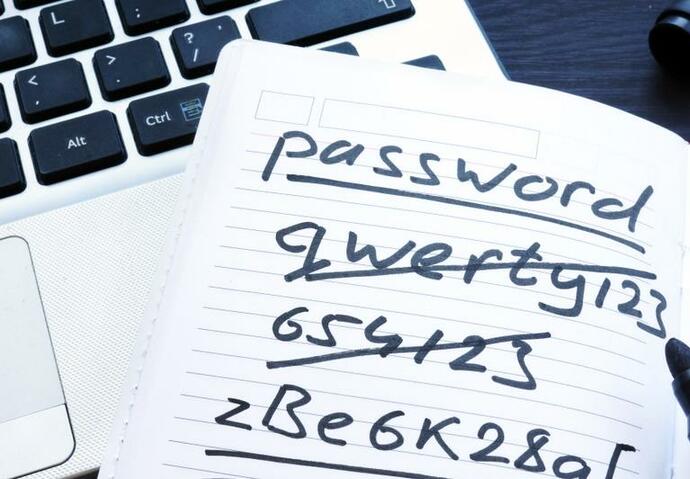 L
: ;
? /
< ,
> .
Alt
Ctrl
password
qwerty123
654123
zBe6K28a